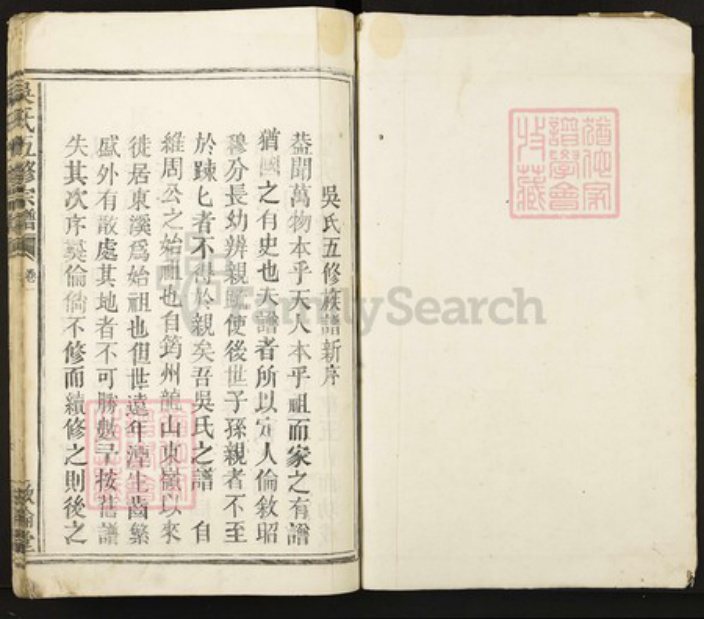 吳氏五修族譜新序
葢聞萬物本乎天人本乎祖而家之有譜
猶國之有史也夫譜者所以定人倫敘昭
穆分長幼辨親疎使後世子孫親者不至
於踈匕者不得於親矣吾吳氏之譜 自
維周公之始祖也自筠州龍山東嶺以來
徙居東溪爲始祖也但世遠年湮生齒繁
盛外有散處其地者不可勝數早按舊譜
失其次序彛倫倘不修而續修之則後之
吳氏五修宗譜
卷一
敘倫堂
譜學會
收藏
FamilySearch